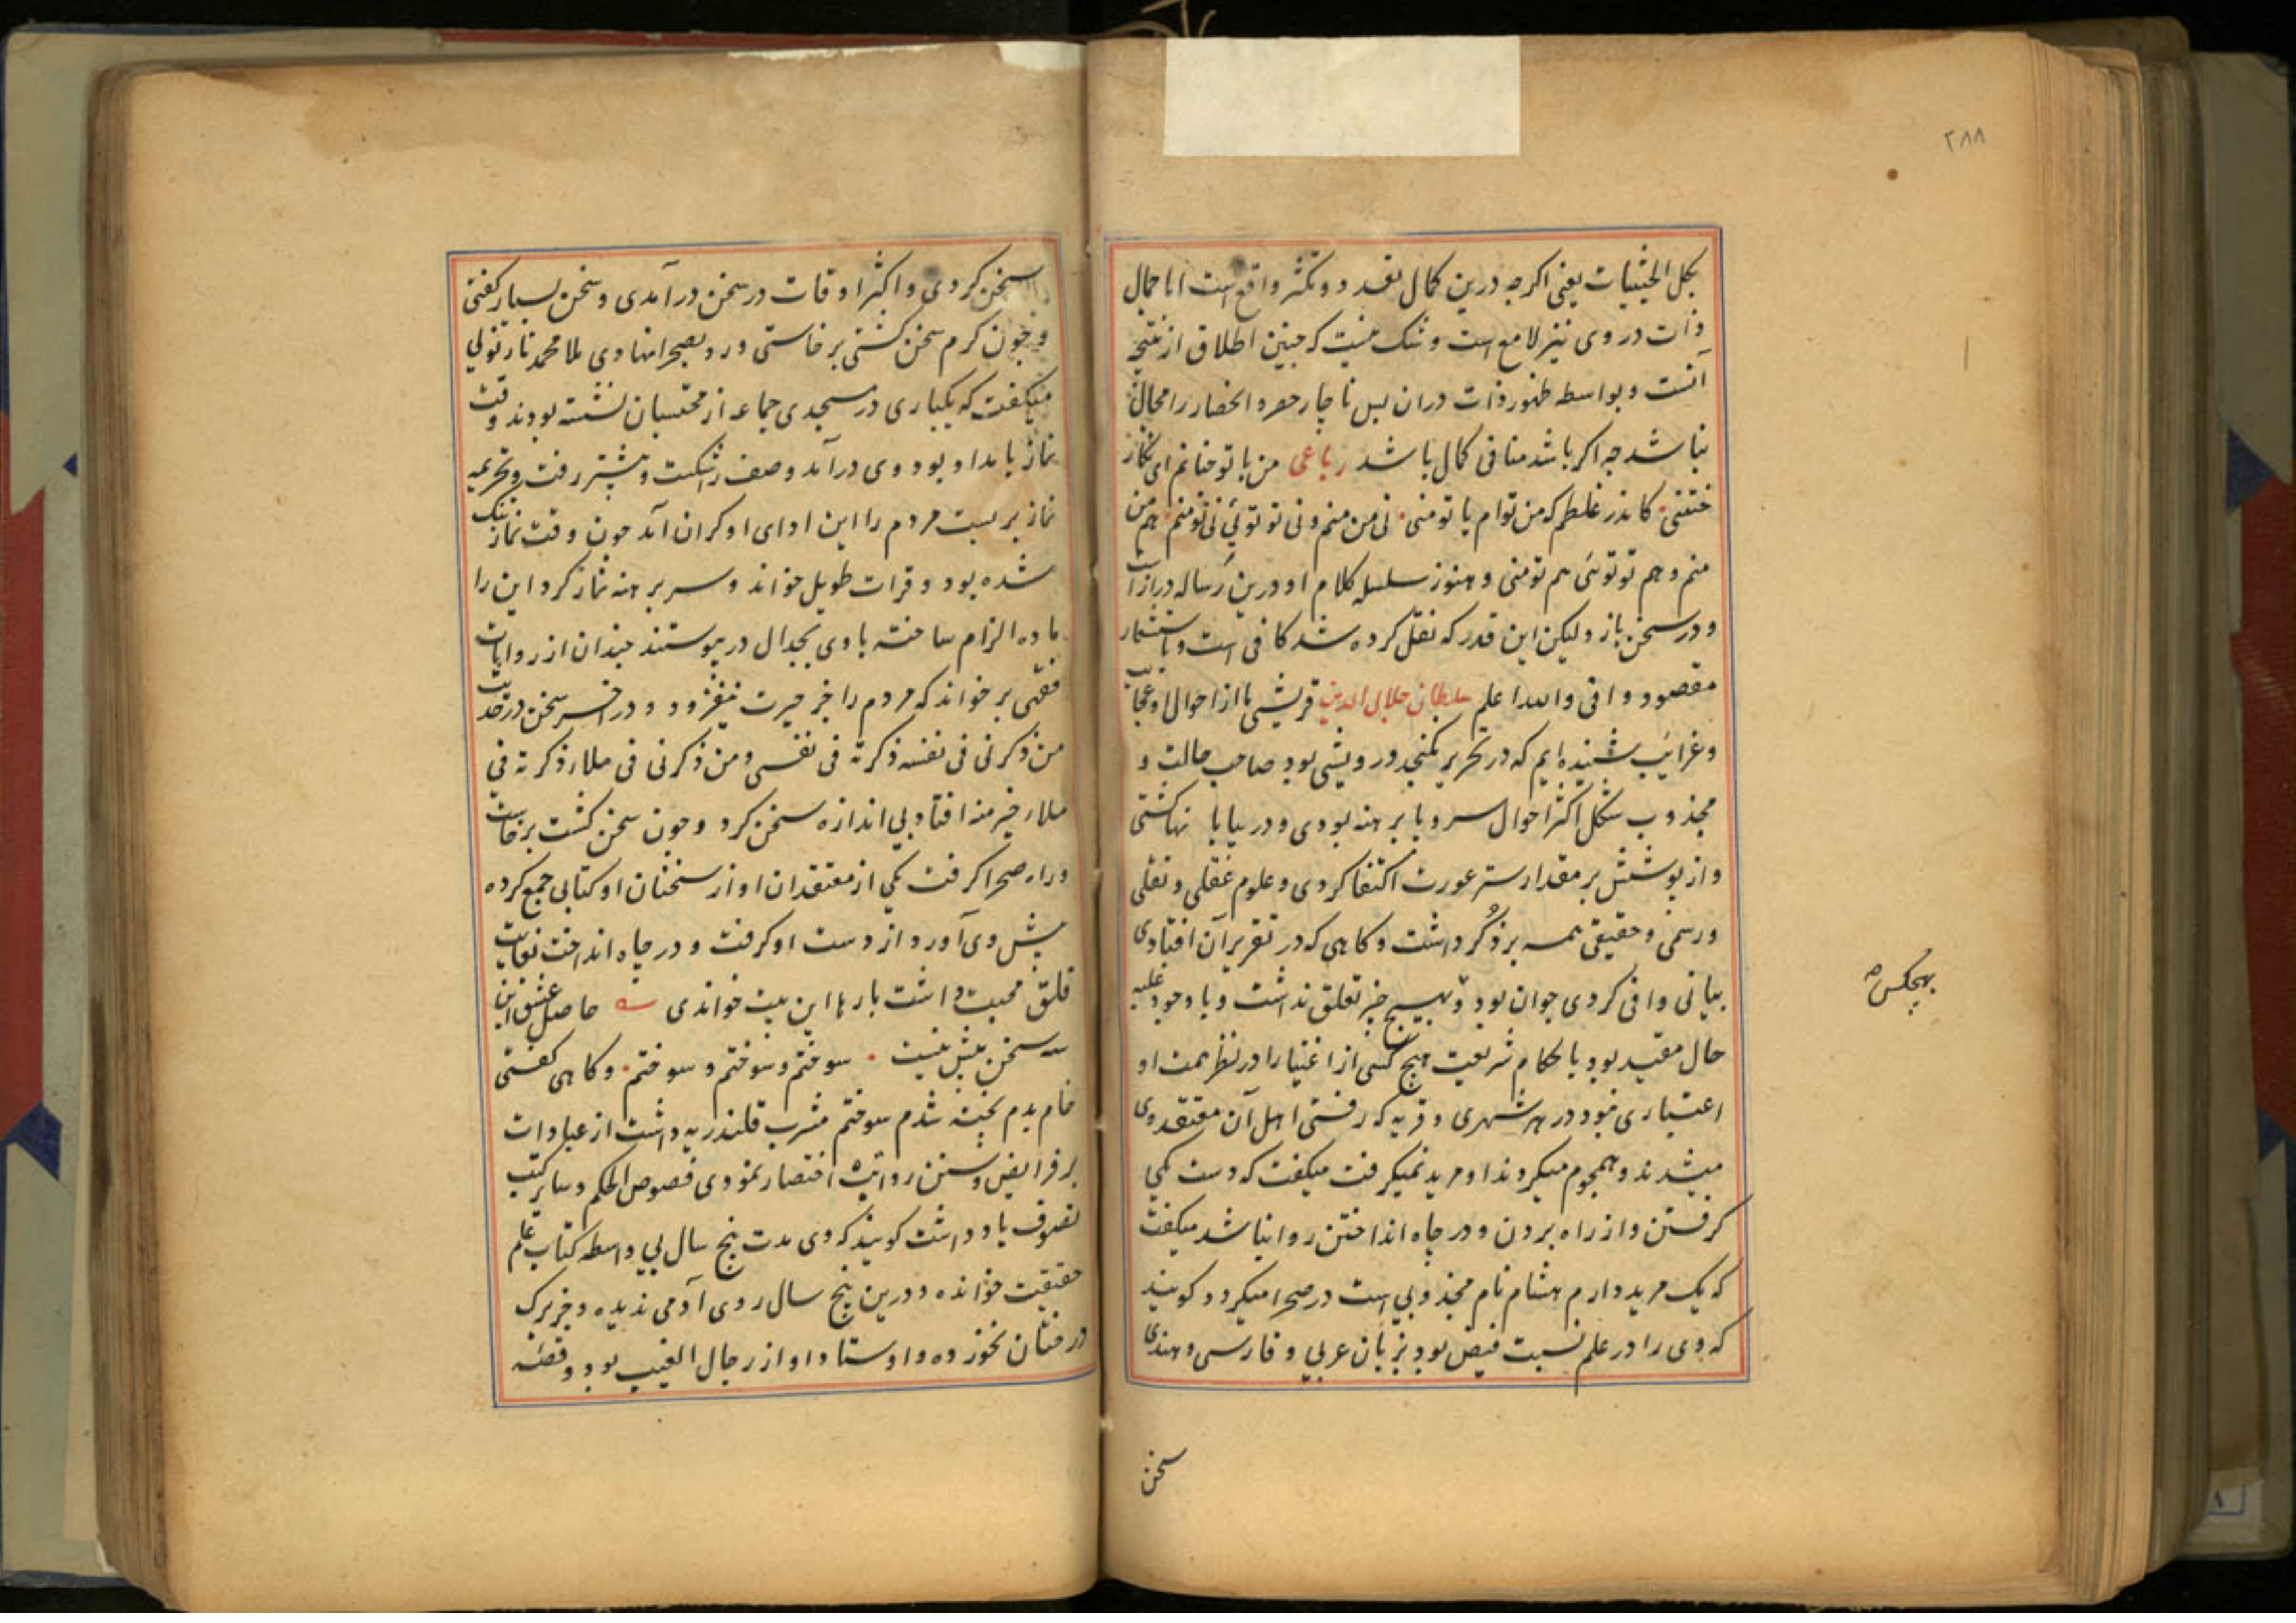 ۲۸۸
بکل الحیثیات یعنی اکرچه درین کمال تعدد و تکثر واقع است اما جمال
ذات در وی نیز لامع است و شک نیست که چنین اطلاق از نتیجه
آنست و بواسطه ظهور ذات دران پس ناچار حصر و انحصار را مجال
نباشد چه اکر باشد منافی کمال باشد رباعی من با تو چنانم ای نکار
ختنی کاندر غلطم که من توام یا تو منی نی من منم و نی تو توئی نی تو منم هم من
منم و هم تو توئی هم تو منی و هنوز سلسله کلام او درین رساله دراز است
و در سخن باز ولیکن این قدر که نقل کرده شد کافی است و باستشعار
مقصود وافی والله اعلم سلطان جلال الدین قریشی ما از احوال او عجایب
و غرایب شنیده ایم که در تحریر نکنجد درویشی بود صاحب حالت و
مجذوب شکل اکثر احوال سر و پا برهنه بودی و در بیابانها کشتی
و از پوشش بر مقدار ستر عورت اکتفا کردی و علوم عقلی و نقلی
و رسمی و حقیقی همه بر ذکر داشت و کاهی که در تقریر آن افتادی
بیانی وافی کردی جوان بود و بهیچ چیز تعلق نداشت و با وجود غلبه
بهیچکس
حال مقید بود باحکام شریعت هیچ کسی از اغنیا را در نظر همت او
اعتباری نبود در هر شهری و قریه که رفتی اهل آن معتقد وی
میشدند و هجوم میکردند او مرید نمیکرفت میکفت که دست یکی
کرفتن و از راه بردن و در چاه انداختن روا نباشد میکفت
که یک مرید دارم هشام نام مجذوبی است در صحرا میکردد کویند
که وی را در علم نسبت فیض بود بزبان عربی و فارسی و هندی
سخن
سخن کردی و اکثر اوقات در سخن درآمدی و سخن بسیار کفتی
و چون کرم سخن کشتی برخاستی و رو بصحرا نهادی ملا محمد نارنولی
میکفت که یکباری در مسجدی جماعه از محتسبان نشسته بودند وقت
نماز بامداد بود وی درآمد و صف را شکست و پیشتر رفت و تحریمه
نماز بر بست مردم را این ادای او کران آمد چون وقت نماز تنک
شده بود و قرات طویل خواند و سر برهنه نماز کرد این را
ماده الزام ساخته با وی بجدال در پیوستند چندان از روایات
فقهی بر خواند که مردم را جز حیرت نیفزود و در آخر سخن در حدیث
من ذکرنی فی نفسه ذکرته فی نفسی و من ذکرنی فی ملاء ذکرته فی
ملاء خیر منه افتاد بی اندازه سخن کرد و چون سخن کشت برخاست
و راه صحرا کرفت یکی از معتقدان او از سخنان او کتابی جمع کرده
پیش وی آورد از دست او کرفت و در چاه انداخت نهایت
قلق محبت داشت بارها این بیت خواندی حاصل عشق این
سه سخن بیش نیست سوختم و سوختم و سوختم و کاهی کفتی
خام بدم پخته شدم سوختم مشرب قلندریه داشت از عبادات
بر فرایض و سنن رواتبه اختصار نمودی فصوص الحکم و سایر کتب
تصوف یاد داشت کویند که وی مدت پنج سال بی واسطه کتاب علم
حقیقت خوانده و درین پنج سال روی آدمی ندیده و جز برک
درختان نخورده و اوستاد او از رجال الغیب بود و قصه